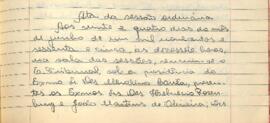 Ata da sessão ordinária
Aos vinte e quatro dias do mês
de junho de um mil novecentos e
sessenta e cinco, às dezesseis horas,
na sala das sessões, reuniu-se o
Tribunal, sob a presidência do
Exmo Sr. Des. presen-
tes os Exmos Srs. Des.
e João Martins de Oliveira,